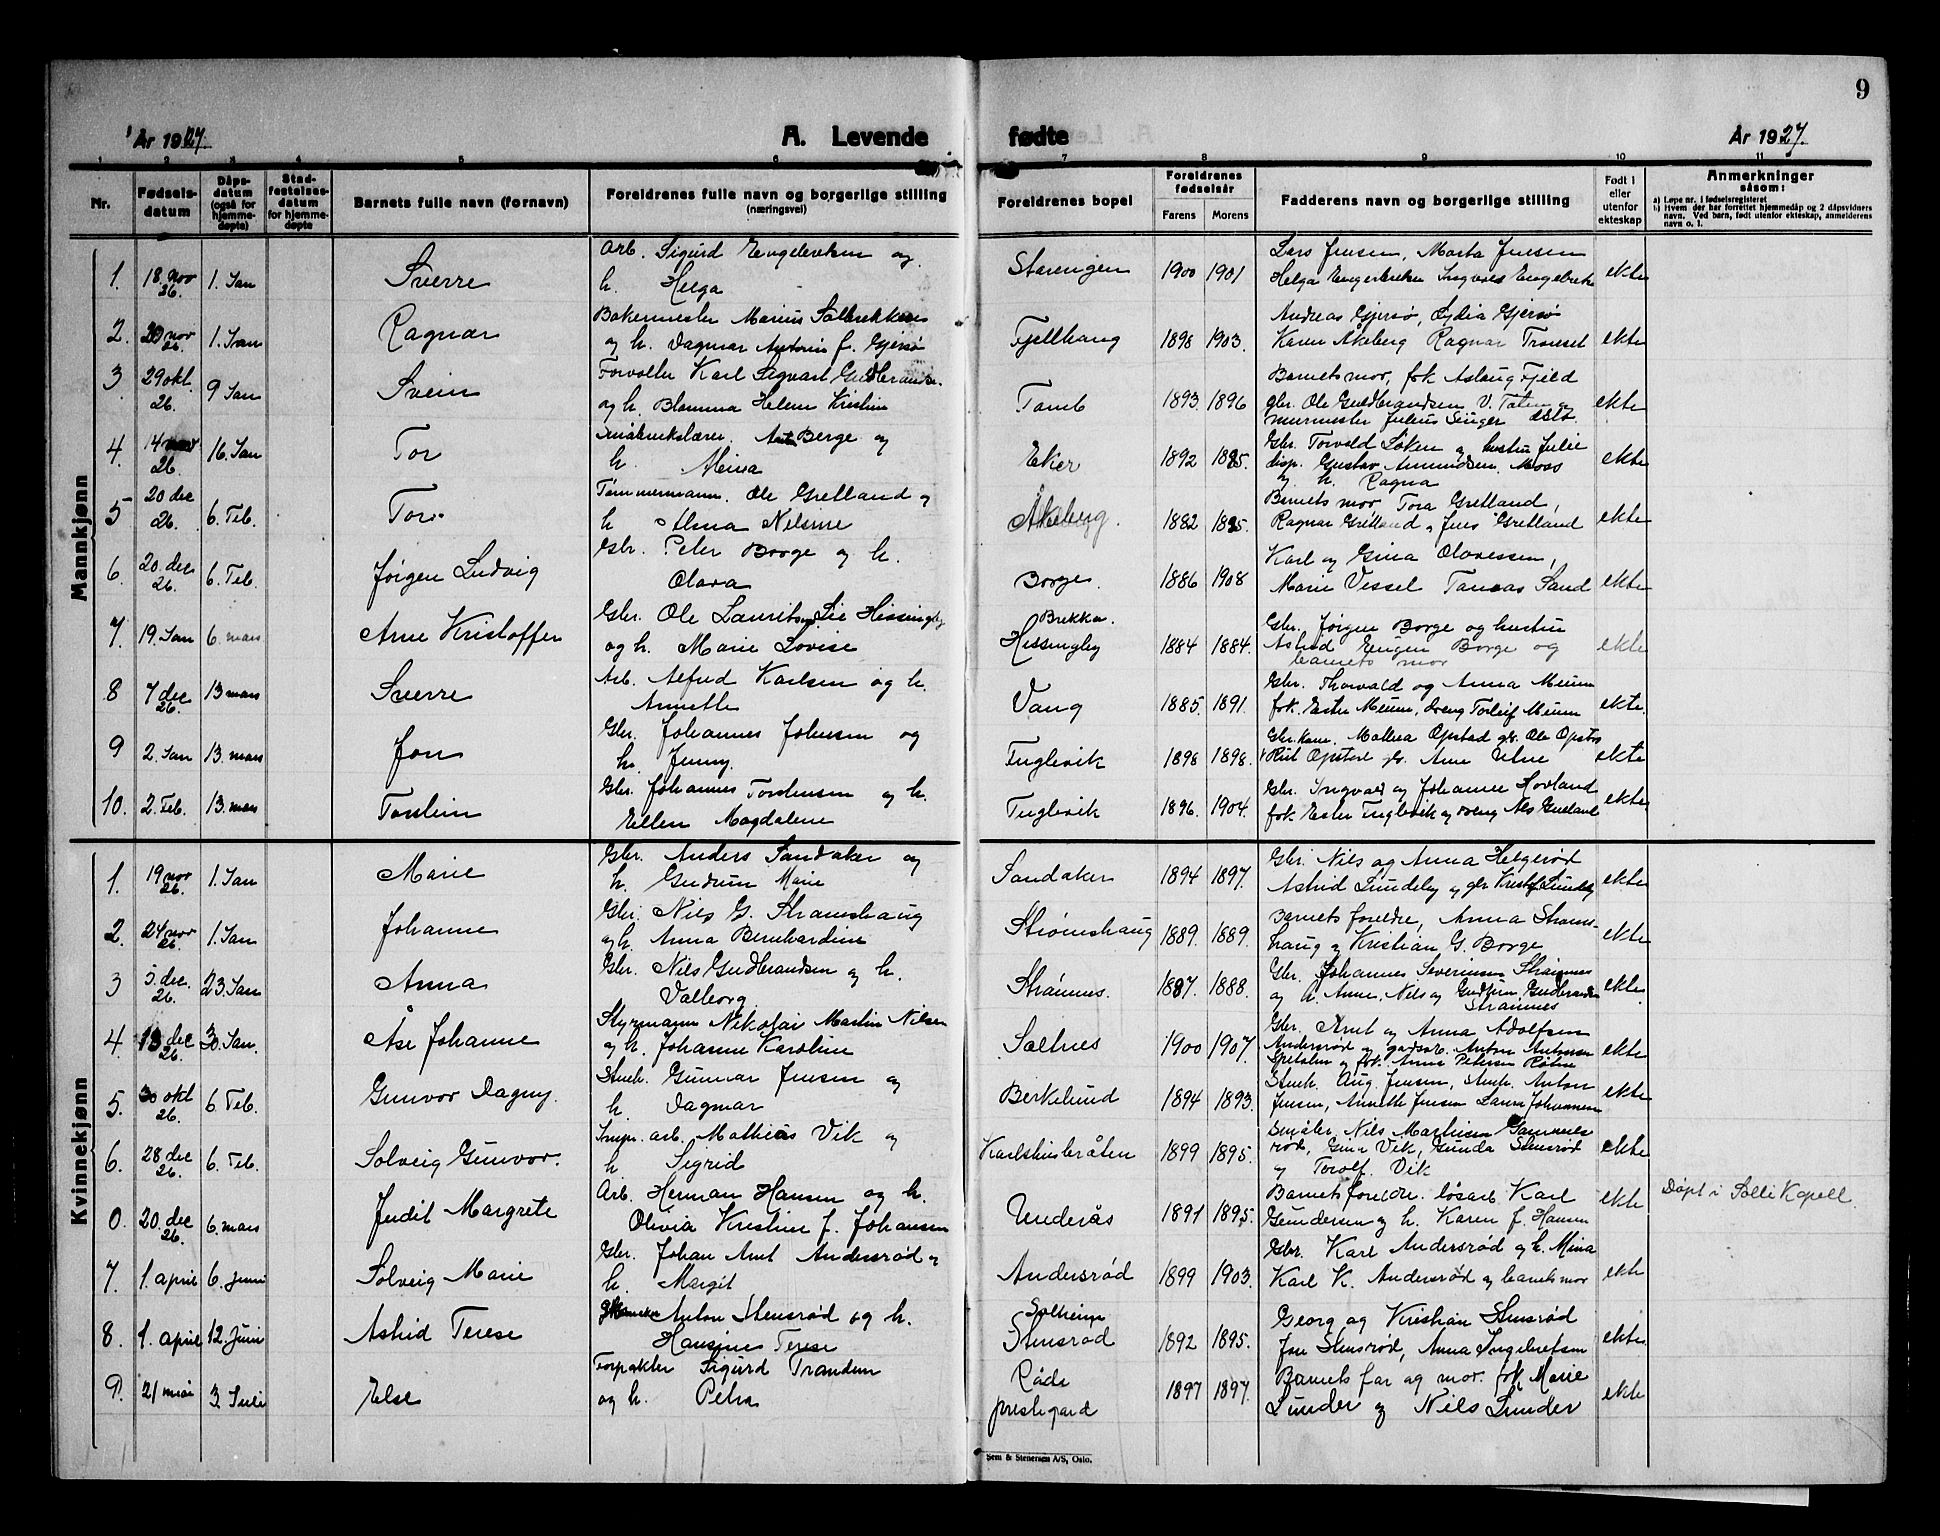 9
År 1927. A. Levende fødte År 1927.
1 2 3 4 5 6 7 8 9 10 11
Nr. Fødsels-datum Dåps-datum (også for hjemme-døpte) Stad-festelses-datum for hjemme-døpte Barnets fulle navn (fornavn) Foreldrenes fulle navn og borgerlige stilling (næringsvei) Foreldrenes bopel Foreldrenes fødselsår Farens Morens Faddernes navn og borgerlige stilling Født i eller utenfor ekteskap Anmerkninger såsom:
a) Løpe nr. i fødselsregisteret
b) Hvem der har forrettet hjemmedåp og 2 dåpsvidners navn. Ved barn, født utenfor ekteskap, anmelderens navn o. l.
Mannkjønn
Arb. Sigurd og Lars Jensen, Marta Jensen
1. 18. nov 26. 1. Jan Sverre h. Helga Størengen 1900 1901 Helga ekte
Bakermester Marius Andreas Gjersø, Lydia Gjersø
2. 20 nov 26. 1. Jan Ragnar og h. Dagmar Antonie f. Gjersø Fjellhaug 1898 1903. Karen Åkeberg Ragnar ekte
Forvalter Karl Sigvart Guldbrandsen Barnets mor, frk Aslaug Fjeld
3 29 okt. 26. 9 Jan Svein og h. Helene Kristine Tomb 1893 1896 gbr. Ole Guldbrandsen V. Toten og ekte
murmester Julius
Småbrukslærer. Berge og Gbr. Torvald Løken og hustru Julie
4. 14 26. 16. Jan Tor h. Mina Eker 1892 1895. disp. Gustav Amundsen, Moss ekte
og h. Ragna
5 20 dec 26. 6. Feb. Tore Tømmermann. Ole Gretland og Barnets mor, Tora Gretland,
h Alma Nilsine Åkeberg. 1882 1885. Ragnar Gretland, Jens Gretland ekte
Gbr. Peter Borge og h. Karl og Gina Olavessen,
6. 20. dec 26. 6. Feb. Jørgen Ludvig Olava Borge. 1886 1908 Marie Vessel Sand ekte
Gbr. Ole Laurits Lie Hissingby Brekka. Gbr. Jørgen Borge og hustru
7. 19. Jan 6. mars Arne Kristoffer og h. Marie Lovise Hissingby 1884 1884. Astrid Borge og ekte
barnets mor
Arb. Alfred Karlsen og h. Gbr. Thorvald og Anna Meum
8 7 dec 26. 13 mars Sverre Annette Vang 1885. 1891. frk. Ester Meum, dreng Torleif Meum ekte.
Gbr. Johannes Johnsen og Gbr. kone. Mathea Opstad gbr. Ole Opstad
9 2. Jan 13. mars Jon h. Jenny. Fuglevik 1898 1898. Rut Opstad gbr. Arne ekte
10. 2. Feb. 13 mars Torstein Gbr. Johannes Torstensen og h. Gbr. Ingvald og Johanne Hovland
Ellen Magdalene Fuglevik 1896. 1904. frk. Ester Fuglevik og dreng ekte
Kvinnekjønn
Gbr. Anders Sandaker og Gbr. Nils og Anna Helgerød
1. 19 nov 26. 1. Jan Marie h. Gudrun Marie Sandaker 1894 1897. Astrid Lundeby og gbr Lundeby ekte
Gbr. Nils G. Strømshaug Barnets foreldre, Anna Strøms-
2. 24 nov 26. 1. Jan Johanne og h. Anna Bernhardine Strømshaug 1889. 1889. haug og Kristian G. Borge ekte
Gbr. Nils Gudbrandsen og h. Gbr. Johannes Severinsen Strømnes
3 5. dec. 26. 23. Jan Anna Valborg Strømnes. 1887. 1888. og Anne. Nils og Gudrun Gudbrandsen ekte.
Strømnes
Styrmann Nikolai Martin Nilsen Gbr. Arnt og Anna Adolfsen
4. 13 dec 26. 30. Jan. Åse Johanne og h. Johanne Karoline Saltnes 1900 1907. Andersrød og Anton Antonsen ekte
og frk. Anna Petersen
Stenh. Gunnar Jensen og Stenh. Aug. Jensen, Stenh. Anton
5. 30 okt 26. 6. Feb. Gunvor Dagny. h. Dagmar Berkelund 1894 1893. Jensen, Annette Jensen Laura Johannessen ekte
arb. Mathias Vik og Nils Martinsen
6. 28 dec 26. 6. Feb. Solveig Gunvor. h Sigrid Karlshusbråten 1899 1895. rød, Gina Vik, Gunda Stensrød ekte
og Torolf. Vik
Arb. Herman Hansen og h. Barnets foreldre. løsarb. Karl Døpt i Solli Kapell.
0. 20. dec 26. 6. mars Judit Margrete Olivia Kristine f. Johansen Underås 1891 1895. Gundersen og h. Karen f. Hansen ekte
Gbr. Johan Arnt Andersrød og Gbr. Karl Andersrød og h. Mina
7. 1. april 6. Juni Solveig Marie h. Margit Andersrød 1899 1903. Karl K. Andersrød og barnets mor ekte
Anton Stensrød og h. Solheim Georg og Kristian Stensrød
8. 1. april 12. Juni Astrid Terese Hansine Terese Stensrød 1892 1895. Jon Stensrød, Anna Ingebretsen ekte.
Forpakter Sigurd Trandem Råde Barnets far og mor. frk Marie
9. 21 mai 3. Juli Else og h. Petra prestegard 1897 1897. Lunder og Nils Lunder ekte
Sem & Stenersen A/S, Oslo.